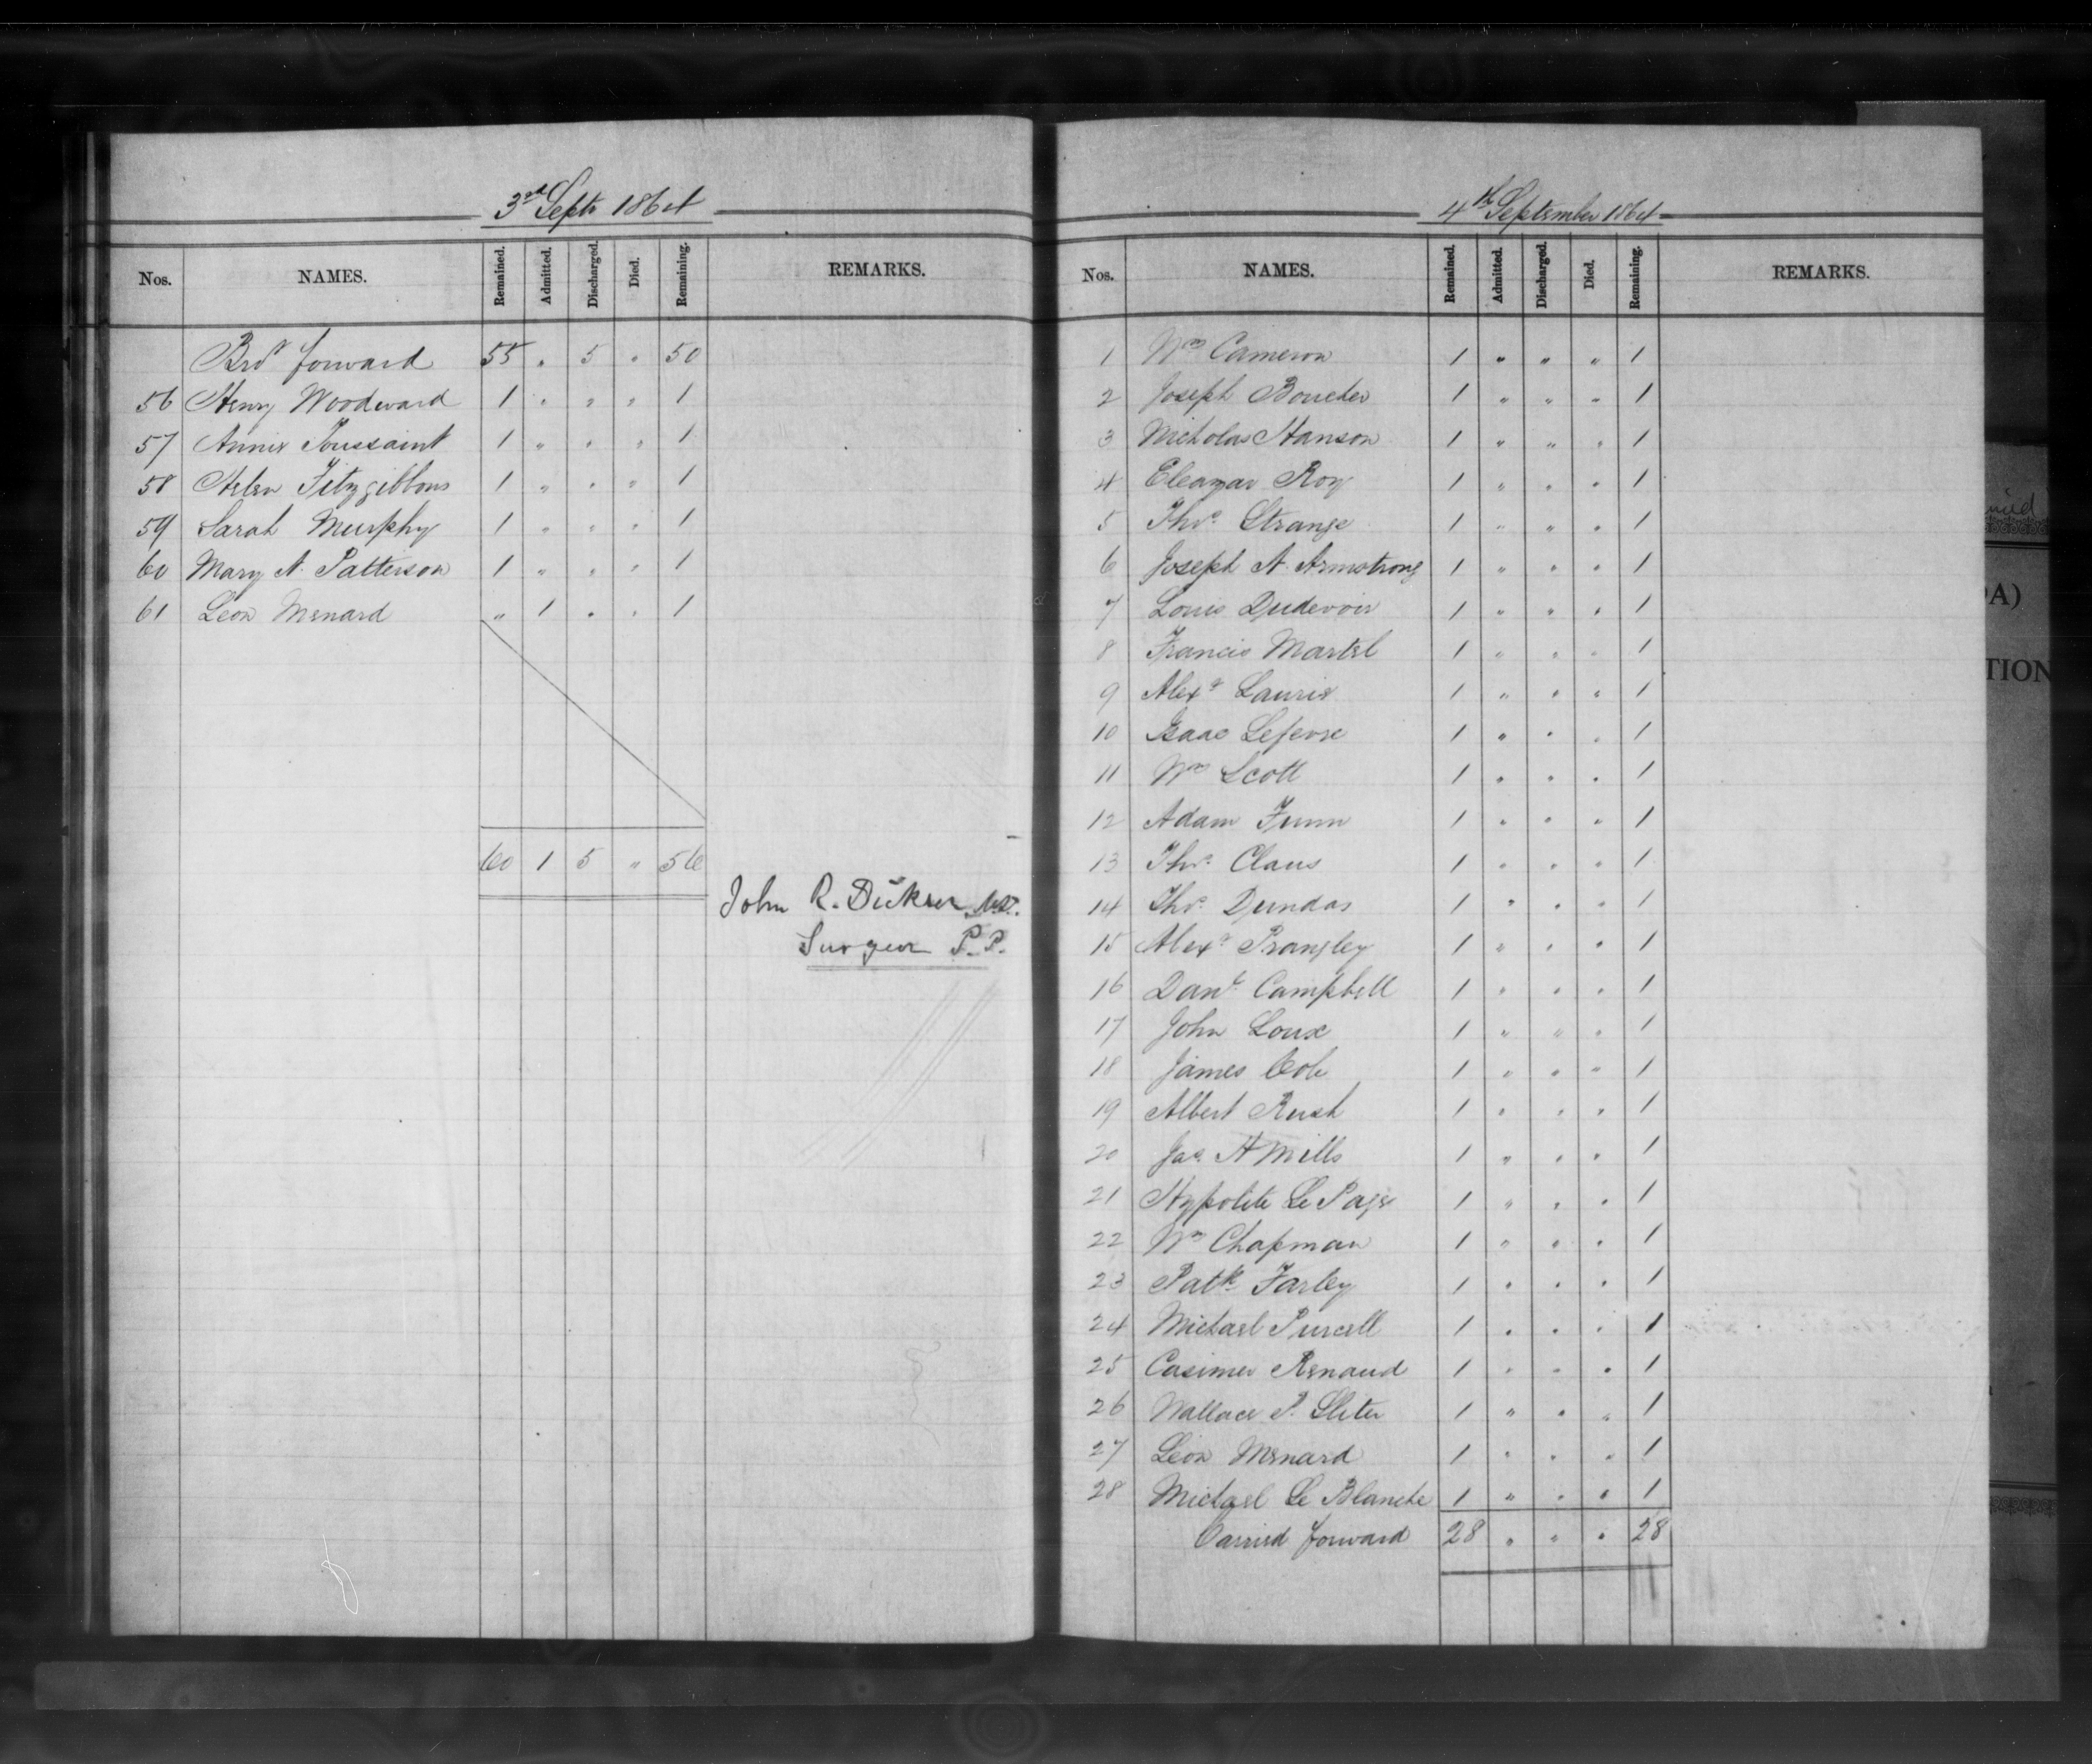 3rd Septr 1864
Nos. NAMES. Remained. Admitted. Discharged. Died. Remaining. REMARKS.
Brot forward 55 " 5 " 50
56 Henry Woodward 1 " " " 1
57 Annie Toussaint 1 " " " 1
58 Helen Fitzgibbons 1 " " " 1
59 Sarah Murphy 1 " " " 1
60 Mary A. Patterson 1 " " " 1
61 Leon Menard " 1 " " 1
60 1 5 " 56
John R. Dickson M.D.
Surgeon P.P.
4th September 1864
Nos. NAMES. Remained. Admitted. Discharged. Died. Remaining. REMARKS.
1 Wm Cameron 1 " " " 1
2 Joseph Boucher 1 " " " 1
3 Nicholas Hanson 1 " " " 1
4 Eleazar Roy 1 " " " 1
5 Thos. Strange 1 " " " 1
6 Joseph A. Armstrong 1 " " " 1
7 Louis Dudevoir 1 " " " 1
8 Francis Martel 1 " " " 1
9 Alexr Laurie 1 " " " 1
10 Isaac Lefevre 1 " " " 1
11 Wm Scott 1 " " " 1
12 Adam Funn 1 " " " 1
13 Thos. Claus 1 " " " 1
14 Thos. Dundas 1 " " " 1
15 Alexr Prangley 1 " " " 1
16 Danl. Campbell 1 " " " 1
17 John Loux 1 " " " 1
18 James Cole 1 " " " 1
19 Albert Rush 1 " " " 1
20 Jas. H Mills 1 " " " 1
21 Hypolite Le Page 1 " " " 1
22 Wm Chapman 1 " " " 1
23 Patk. Farley 1 " " " 1
24 Michael Purcell 1 " " " 1
25 Casimer Renaud 1 " " " 1
26 Wallace P. Sliter 1 " " " 1
27 Leon Menard 1 " " " 1
28 Michael Le Blanche 1 " " " 1
Carried forward 28 " " " 28
A)
TION